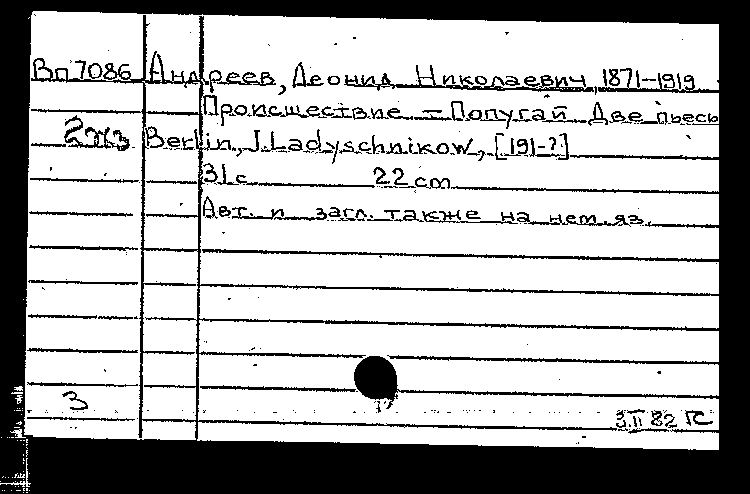 Вп 7086 Андреев, Леонид Николаевич, 1871-1919
Происшествие - Попугай Две пьесы
Berlin, J. Ladyschnikow, [191-?]
31 с 22 cm
Авт. и загл. также на нем. яз.
3
3.II 82